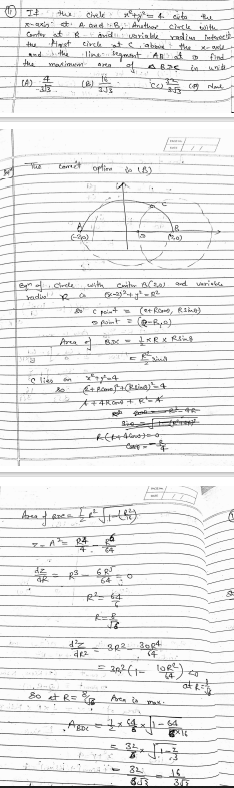 If the circle x²+y²=4 cuts the
x-axis at A and B, Another circle with
center at B and variable radius intersect
the first circle at C above the x-axis
and the line segment AB at D find
the maximum area of △ BDC in unit
(A) 4/3√3 (B) 16/3√3 (C) 32/3√3 (D) None
The correct option is (B)
C
A
B
(-2,0)
D
(2,0)
Eqn of circle with center B(2,0) and variable
radius R is (x-2)²+y²=R²
so C point = (2+Rcosθ, Rsinθ)
D point = (2-R,0)
Area of BDC = 1/2 × R × Rsinθ
= R²/2 sinθ
C lies on x²+y²=4
so (2+Rcosθ)²+(Rsinθ)²=4
4+4Rcosθ+R²=4
R(R+4cosθ)=0
cosθ = -R/4
Area of BDC = 1/2 R² √1-(R²/16)
z = A² = R⁴/4 - R⁶/64
dz/dR = R³ - 6R⁵/64 = 0
R² = 64/6
R = 8/√6
d²z/dR² = 3R² - 30R⁴/64
= 3R²(1 - 10R²/64) <0
at R=8/√6
so at R=8/√6 Area is max.
A BDC = 1/2 × 64/6 × √1-64/6×16
= 32/6 × √1-2/3
= 32/6√3 = 16/3√3